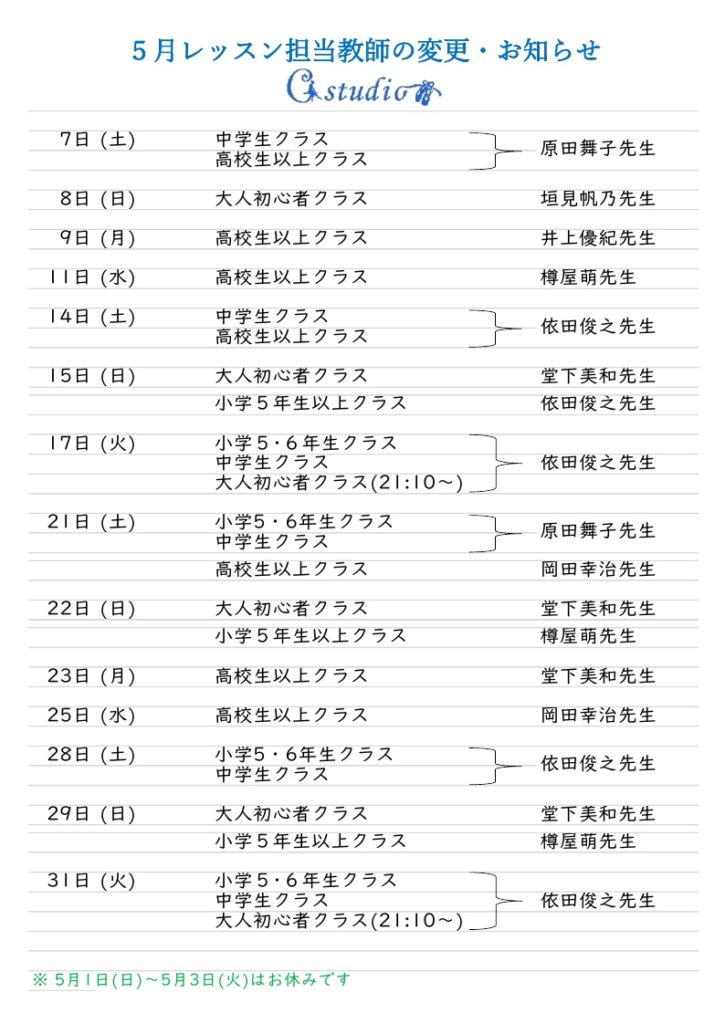 5月レッスン担当教師の変更・お知らせ
G studio
7日 (土) 中学生クラス
高校生以上クラス 原田舞子先生
8日 (日) 大人初心者クラス 垣見帆乃先生
9日 (月) 高校生以上クラス 井上優紀先生
11日 (水) 高校生以上クラス 樽屋萌先生
14日 (土) 中学生クラス
高校生以上クラス 依田俊之先生
15日 (日) 大人初心者クラス 堂下美和先生
小学5年生以上クラス 依田俊之先生
17日 (火) 小学5・6年生クラス
中学生クラス 依田俊之先生
大人初心者クラス(21:10~)
21日 (土) 小学5・6年生クラス
中学生クラス 原田舞子先生
高校生以上クラス 岡田幸治先生
22日 (日) 大人初心者クラス 堂下美和先生
小学5年生以上クラス 樽屋萌先生
23日 (月) 高校生以上クラス 堂下美和先生
25日 (水) 高校生以上クラス 岡田幸治先生
28日 (土) 小学5・6年生クラス
中学生クラス 依田俊之先生
29日 (日) 大人初心者クラス 堂下美和先生
小学5年生以上クラス 樽屋萌先生
31日 (火) 小学5・6年生クラス
中学生クラス 依田俊之先生
大人初心者クラス(21:10~)
※ 5月1日(日)~5月3日(火)はお休みです